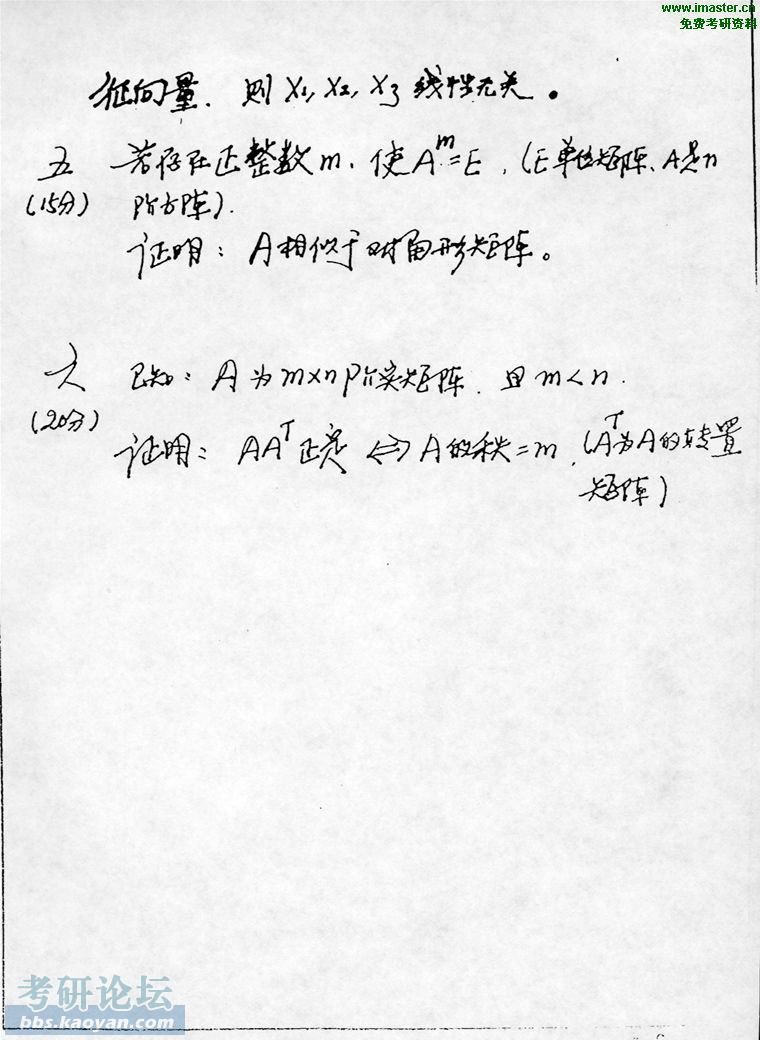 www.imaster.cn
免费考研资料
征向量. 则 X1, X2, X3 线性无关。
五 若存在正整数m, 使 A^m=E, (E单位矩阵、A是n
(15分) 阶方阵).
证明: A相似于对角形矩阵。
六 已知: A为m×n阶实矩阵, 且 m<n.
(20分)
证明: AA^T 正定 <=> A的秩=m, (A^T为A的转置
矩阵)
考研论坛
bbs.kaoyan.com